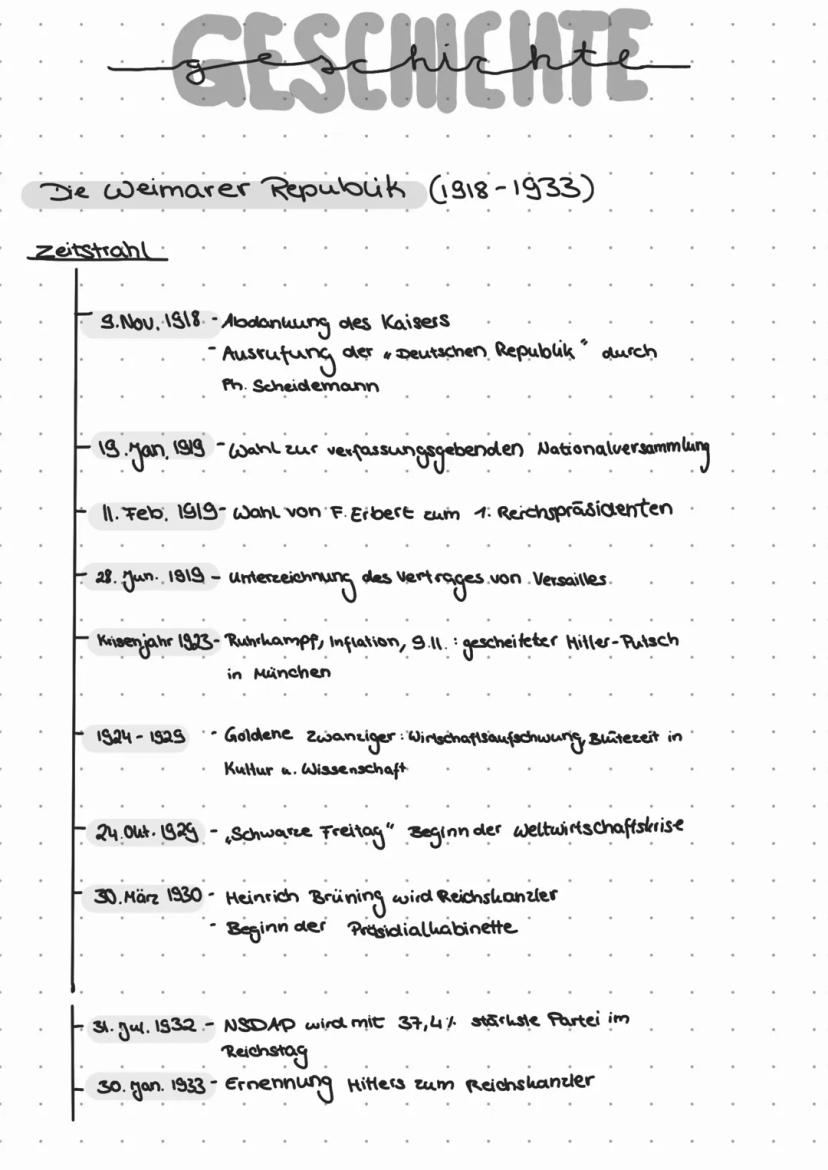 GESCHICHTE
geschichte
Die Weimarer Republik (1918-1933)
Zeitstrahl
9. Nov. 1918 - Abdankung des Kaisers
- Ausrufung der „Deutschen Republik“ durch
Ph. Scheidemann
19. Jan. 1919 - Wahl zur verfassungsgebenden Nationalversammlung
11. Feb. 1919 - Wahl von F. Erbert zum 1. Reichspräsidenten
28. Jun. 1919 - Unterzeichnung des Vertrages von Versailles
Krisenjahr 1923 - Ruhrkampf, Inflation, 9.11. : gescheiteter Hitler-Putsch
in München
1924 - 1929 - Goldene Zwanziger: Wirtschaftsaufschwung, Blütezeit in
Kultur u. Wissenschaft
24. Okt. 1929 - „Schwarze Freitag“ Beginn der Weltwirtschaftskrise
30. März 1930 - Heinrich Brüning wird Reichskanzler
- Beginn der Präsidialkabinette
31. Jul. 1932 - NSDAP wird mit 37,4% stärkste Partei im
Reichstag
30. Jan. 1933 - Ernennung Hitlers zum Reichskanzler